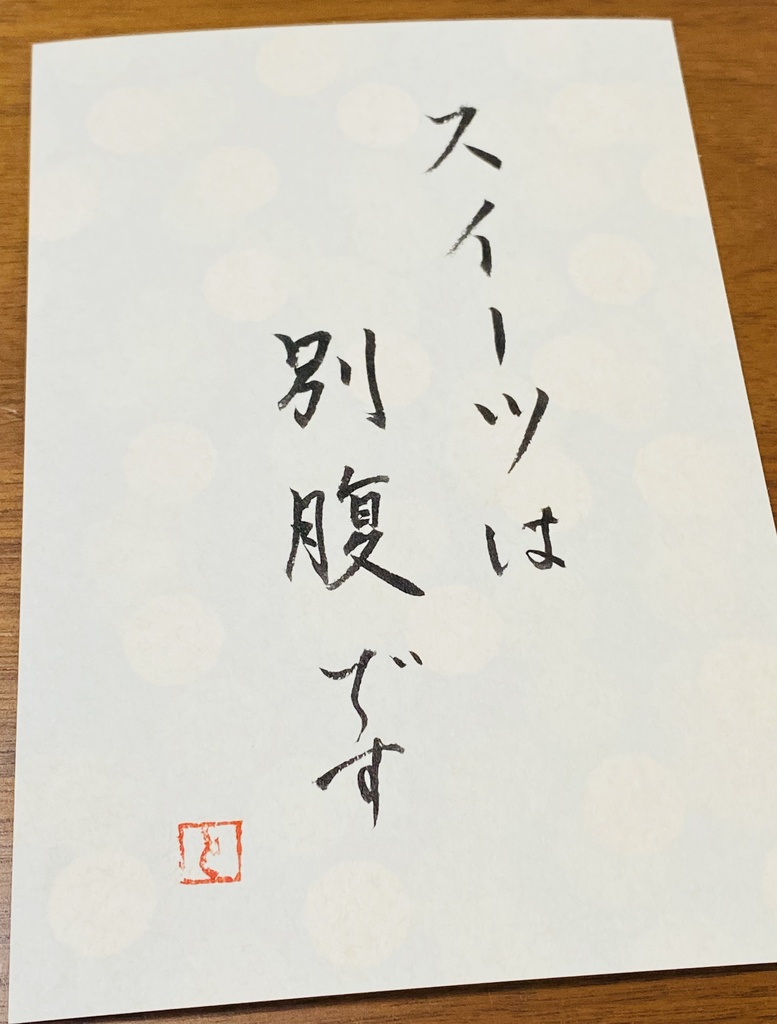 スイーツは
別腹です
と